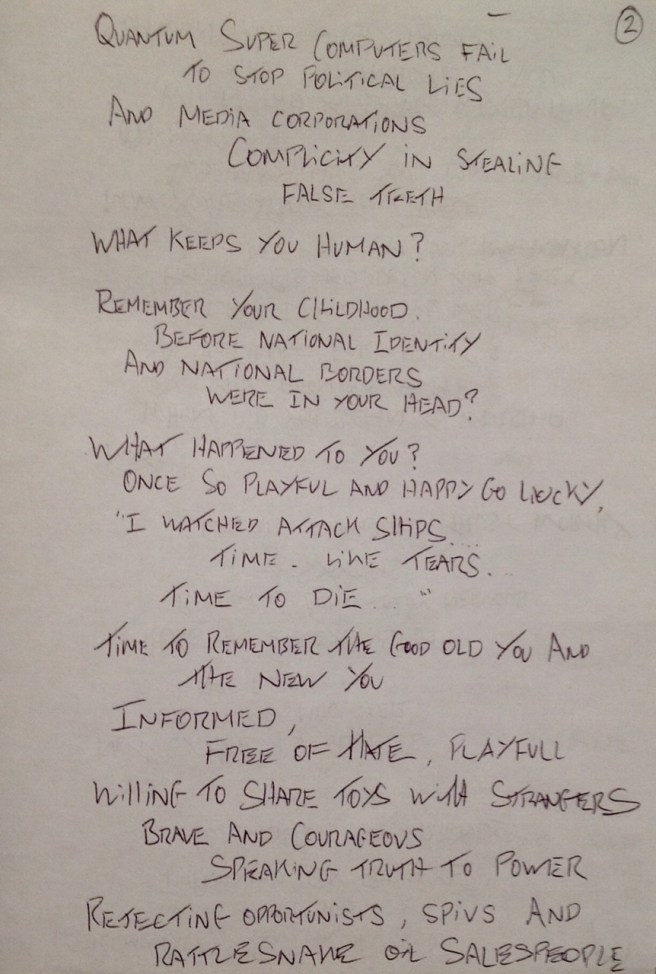 2
QUANTUM SUPER COMPUTERS FAIL
TO STOP POLITICAL LIES
AND MEDIA CORPORATIONS
COMPLICITY IN STEALING
FALSE TEETH
WHAT KEEPS YOU HUMAN?
REMEMBER YOUR CHILDHOOD.
BEFORE NATIONAL IDENTITY
AND NATIONAL BORDERS
WERE IN YOUR HEAD?
WHAT HAPPENED TO YOU?
ONCE SO PLAYFUL AND HAPPY GO LUCKY,
"I WATCHED ATTACK SHIPS....
TIME. LIKE TEARS...
TIME TO DIE... "
TIME TO REMEMBER THE GOOD OLD YOU AND
THE NEW YOU
INFORMED,
FREE OF HATE, PLAYFULL
WILLING TO SHARE TOYS WITH STRANGERS
BRAVE AND COURAGEOUS
SPEAKING TRUTH TO POWER
REJECTING OPPORTUNISTS, SPIVS AND
RATTLESNAKE OIL SALESPEOPLE